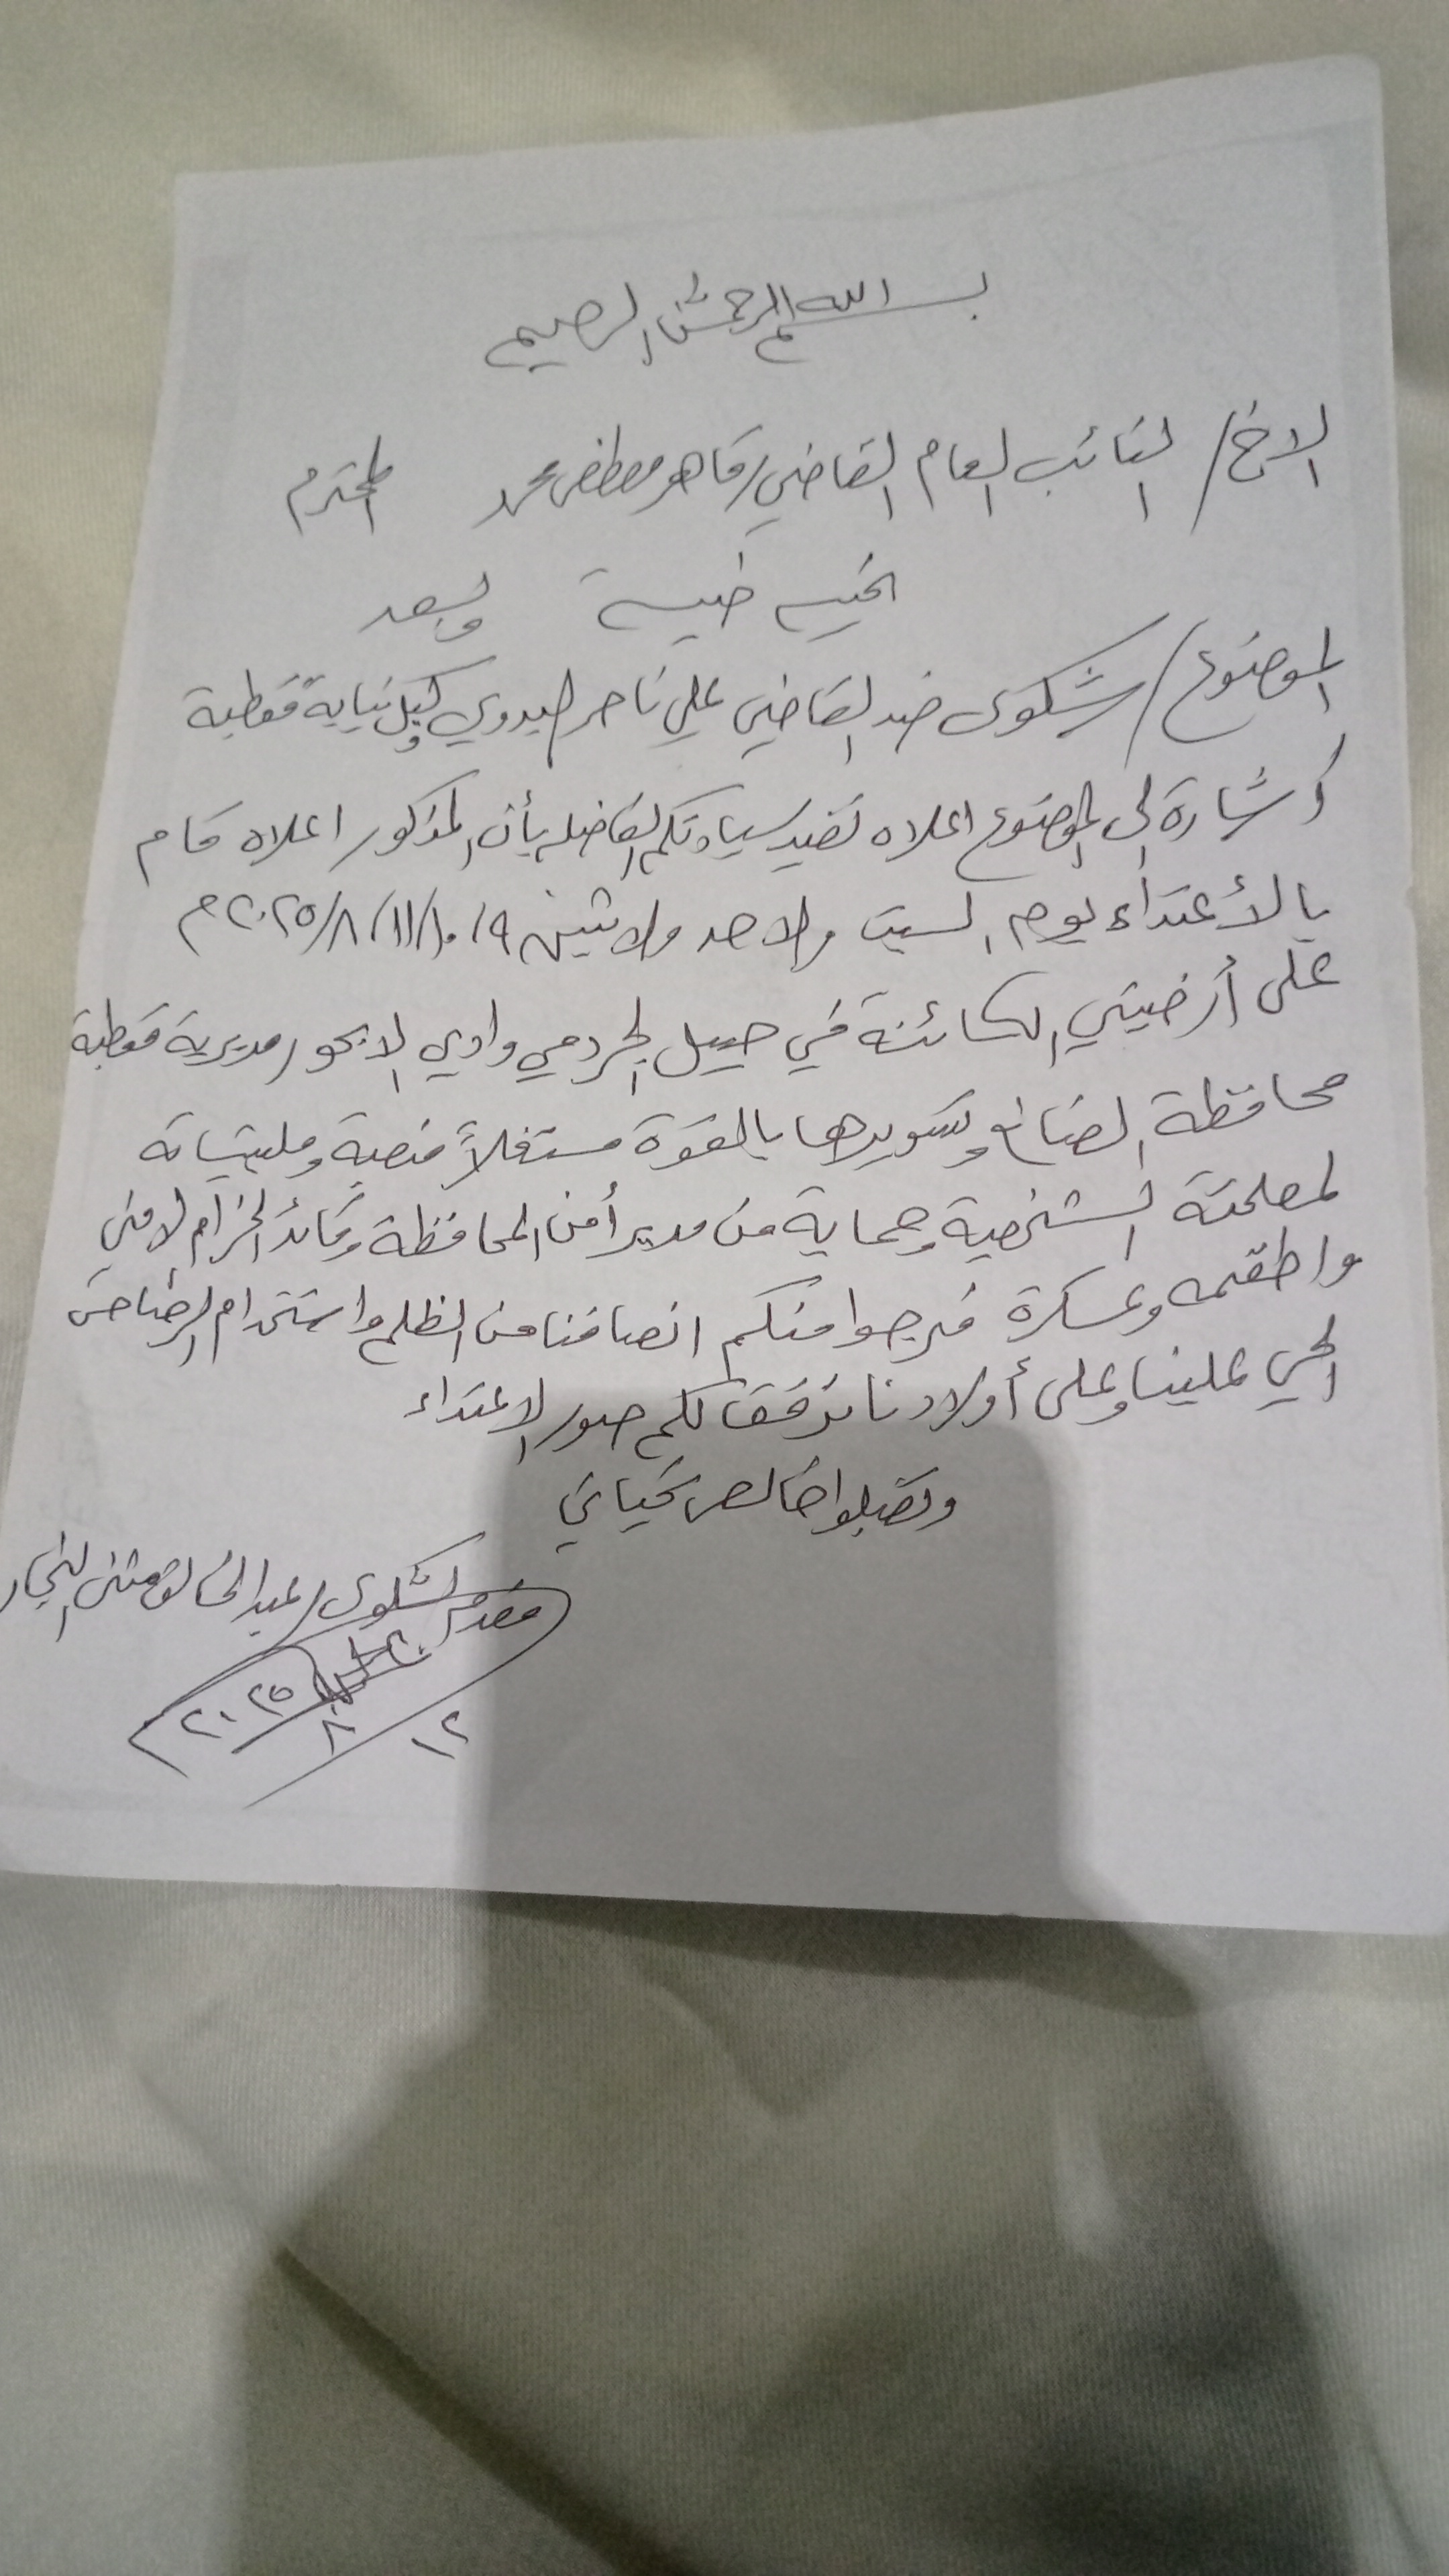 بسم الله الرحمن الرحيم
الاخ/ النائب العام القاضي/ قاهر مصطفى محمد المحترم
تحيه طيبة وبعد
الموضوع/ شكوى ضد القاضي علي ناصر البدوي وكيل نيابة قعطبة
أشارة الى الموضوع اعلاه نفيد سيادتكم الفاضله بأن المذكور اعلاه قام
بالأعتداء يوم السبت والاحد والاثنين ٩/ ١٠/ ١١/ ٨/ ٢٠٢٥م
على أرضيتي الكائنة في حبيل الجردمي وادي الابحور مديرية قعطبة
محافظة الضالع وتسويرها بالقوة مستغلاً منصبة ومليشياتة
لمصلحتة الشخصية وحماية من مدير أمن المحافظة وقائد الحزام الامني
واطقمه وعسكرة نرجوا منكم انصافنا من الظلم واستخدام الرضاص
الحي علينا وعلى أولادنا نرفق لكم صور الاعتداء
وتقبلوا خالص تحياتي
مقدم الشكوى/ عبدالخالق مثنى النجار
١٢/ ٨/ ٢٠٢٥م